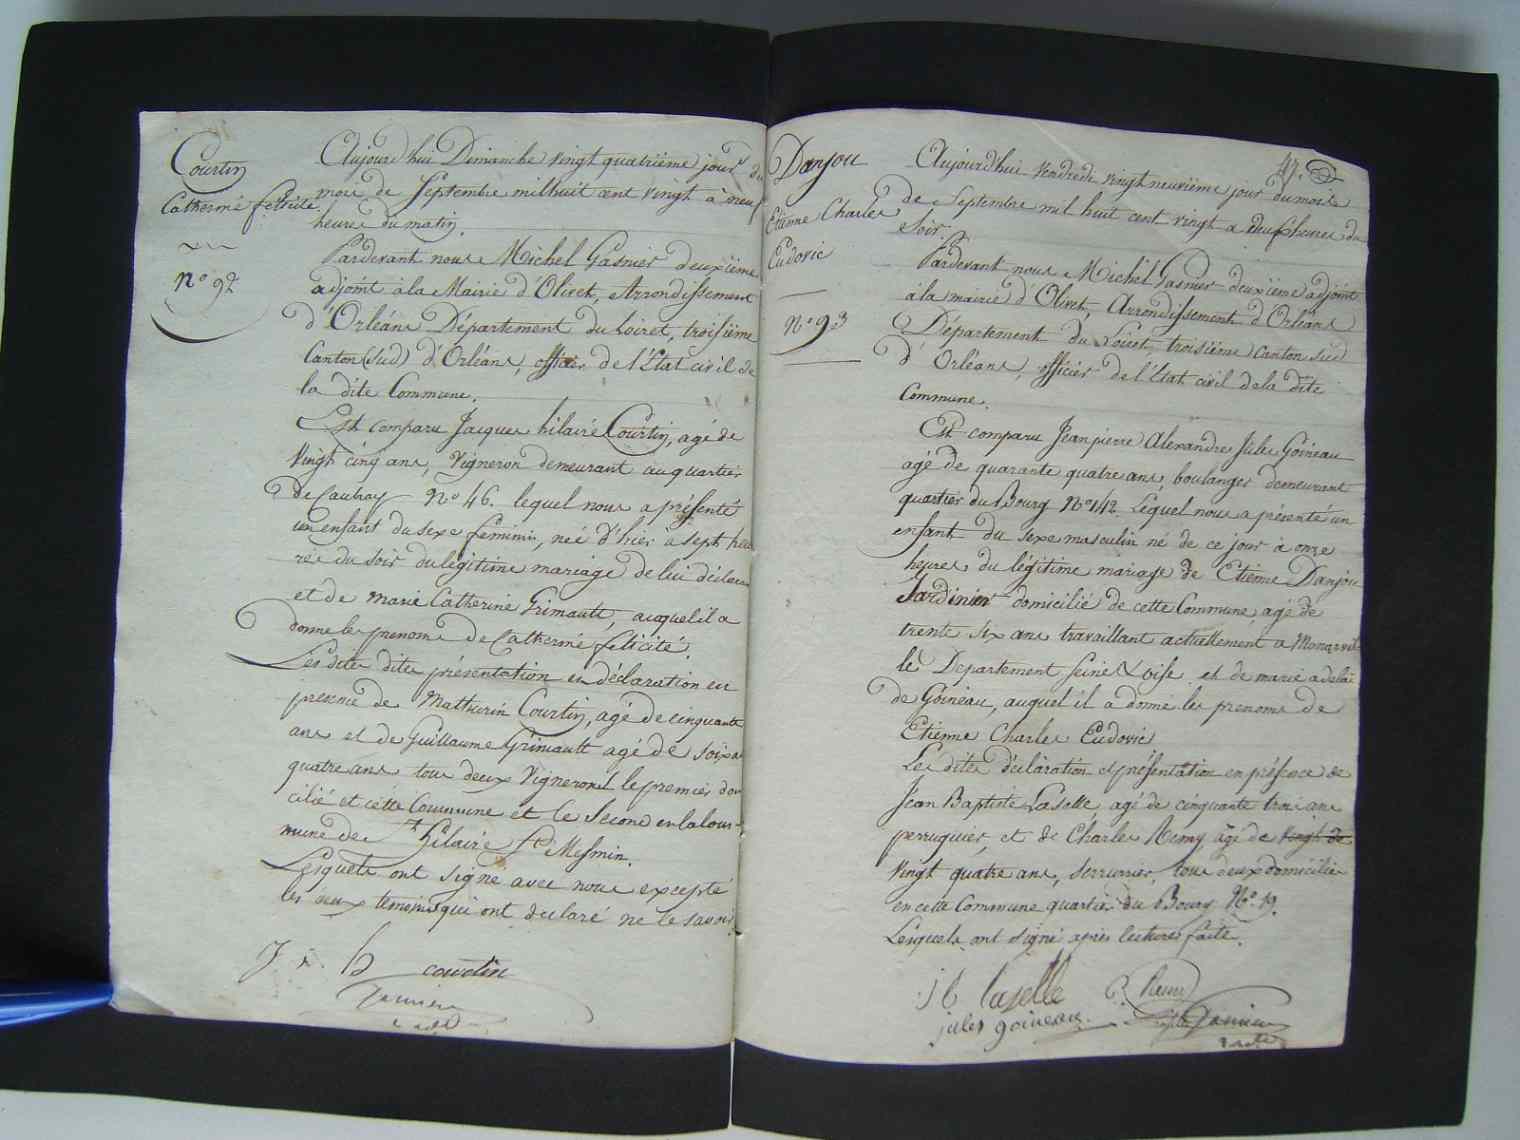 Courtin
Catherine félicité.
N° 92
Aujourd'hui Dimanche vingt quatrième jour du
mois de Septembre mil huit cent vingt à neuf
heures du matin.
Pardevant nous Michel Gasnier deuxième
adjoint à la Mairie d'Olivet, Arrondissement
d'Orléans Département du Loiret, troisième
Canton (Sud) d'Orléans, officier de l'Etat civil de
la dite Commune.
Est comparu Jacques hilaire Courtin, agé de
Vingt cinq ans, Vigneron demeurant au quartier
de Caubray N° 46. lequel nous a présenté
un enfant du sexe féminin, née d'hier à sept heu
res du soir du légitime mariage de lui déclarant
et de marie Catherine Grimault, auquel il a
donné les prenoms de Catherine félicité.
Les dites dites présentation en déclaration en
presence de Mathurin Courtin, agé de cinquante
ans et de Guillaume Grimault agé de soixante
quatre ans tous deux Vignerons le premier domi
cilié et cette Commune et le Second en la Com-
mune de St hilaire St Mesmin.
Lesquels ont signé avec nous excepté
les deux temoins qui ont declaré ne le savoir
J h courtin
Danjou
47.
Etienne Charles
Ludovic
N° 93
Aujourd'hui Vendredi vingt neuvième jour du mois
de Septembre mil huit cent vingt a deux heures du
soir.
Pardevant nous Michel Gasnier deuxième adjoint
à la mairie d'Olivet, Arrondissement d'Orléans
Département du Loiret, troisième Canton Sud
d'Orléans, officier de l'Etat civil de la dite
Commune.
Est comparu Jean pierre Alexandre Jules Goineau
agé de quarante quatre ans, boulanger demeurant
quartier du Bourg N° 142. Lequel nous a présenté un
enfant du sexe masculin né de ce jour à onze
heures du légitime mariage de Etienne Danjou
Jardinier domicilié de cette Commune, agé de
trente six ans travaillant actuellement a Monarvil
le Departement Seine & oise et de marie adelaï
de Goineau, auquel il a donné les prenoms de
Etienne Charles Ludovic
Les dites déclaration et présentation en présence de
Jean Baptiste Laselle agé de cinquante trois ans
perruquier, et de Charles Remy agé de vingt de
Vingt quatre ans, serrurier, tous deux domiciliés
en cette Commune quartier du Bourg N° 19.
Lesquels ont signé après lecture faite.
J b laselle
jules goineau